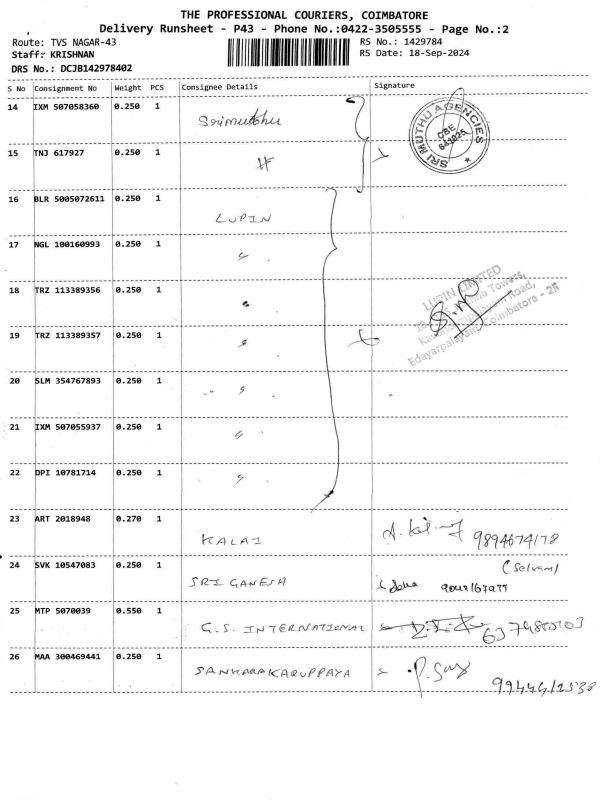 THE PROFESSIONAL COURIERS, COIMBATORE
Delivery Runsheet - P43 - Phone No.:0422-3505555 - Page No.:2
Route: TVS NAGAR-43 RS No.: 1429784
Staff: KRISHNAN RS Date: 18-Sep-2024
DRS No.: DCJB142978402
S No Consignment No Weight PCS Consignee Details Signature
14 IXM 507058360 0.250 1 Srimuthu
SRI MUTHU AGENCIES
CBE
641025
15 TNJ 617927 0.250 1
16 BLR 5005072611 0.250 1 LUPIN
17 NGL 100160993 0.250 1 "
18 TRZ 113389356 0.250 1 "
LUPIN LIMITED
Towers,
Road,
Edayarpalayam, Coimbatore - 25
19 TRZ 113389357 0.250 1 "
20 SLM 354767893 0.250 1 "
21 IXM 507055937 0.250 1 "
22 DPI 10781714 0.250 1 "
23 ART 2018948 0.270 1 KALAI 9894674178
24 SVK 10547083 0.250 1 SRI GANESH (Selvam)
25 MTP 5070039 0.550 1 G.S. INTERNATIONAL
26 MAA 300469441 0.250 1 SANKARAKARUPPAYA